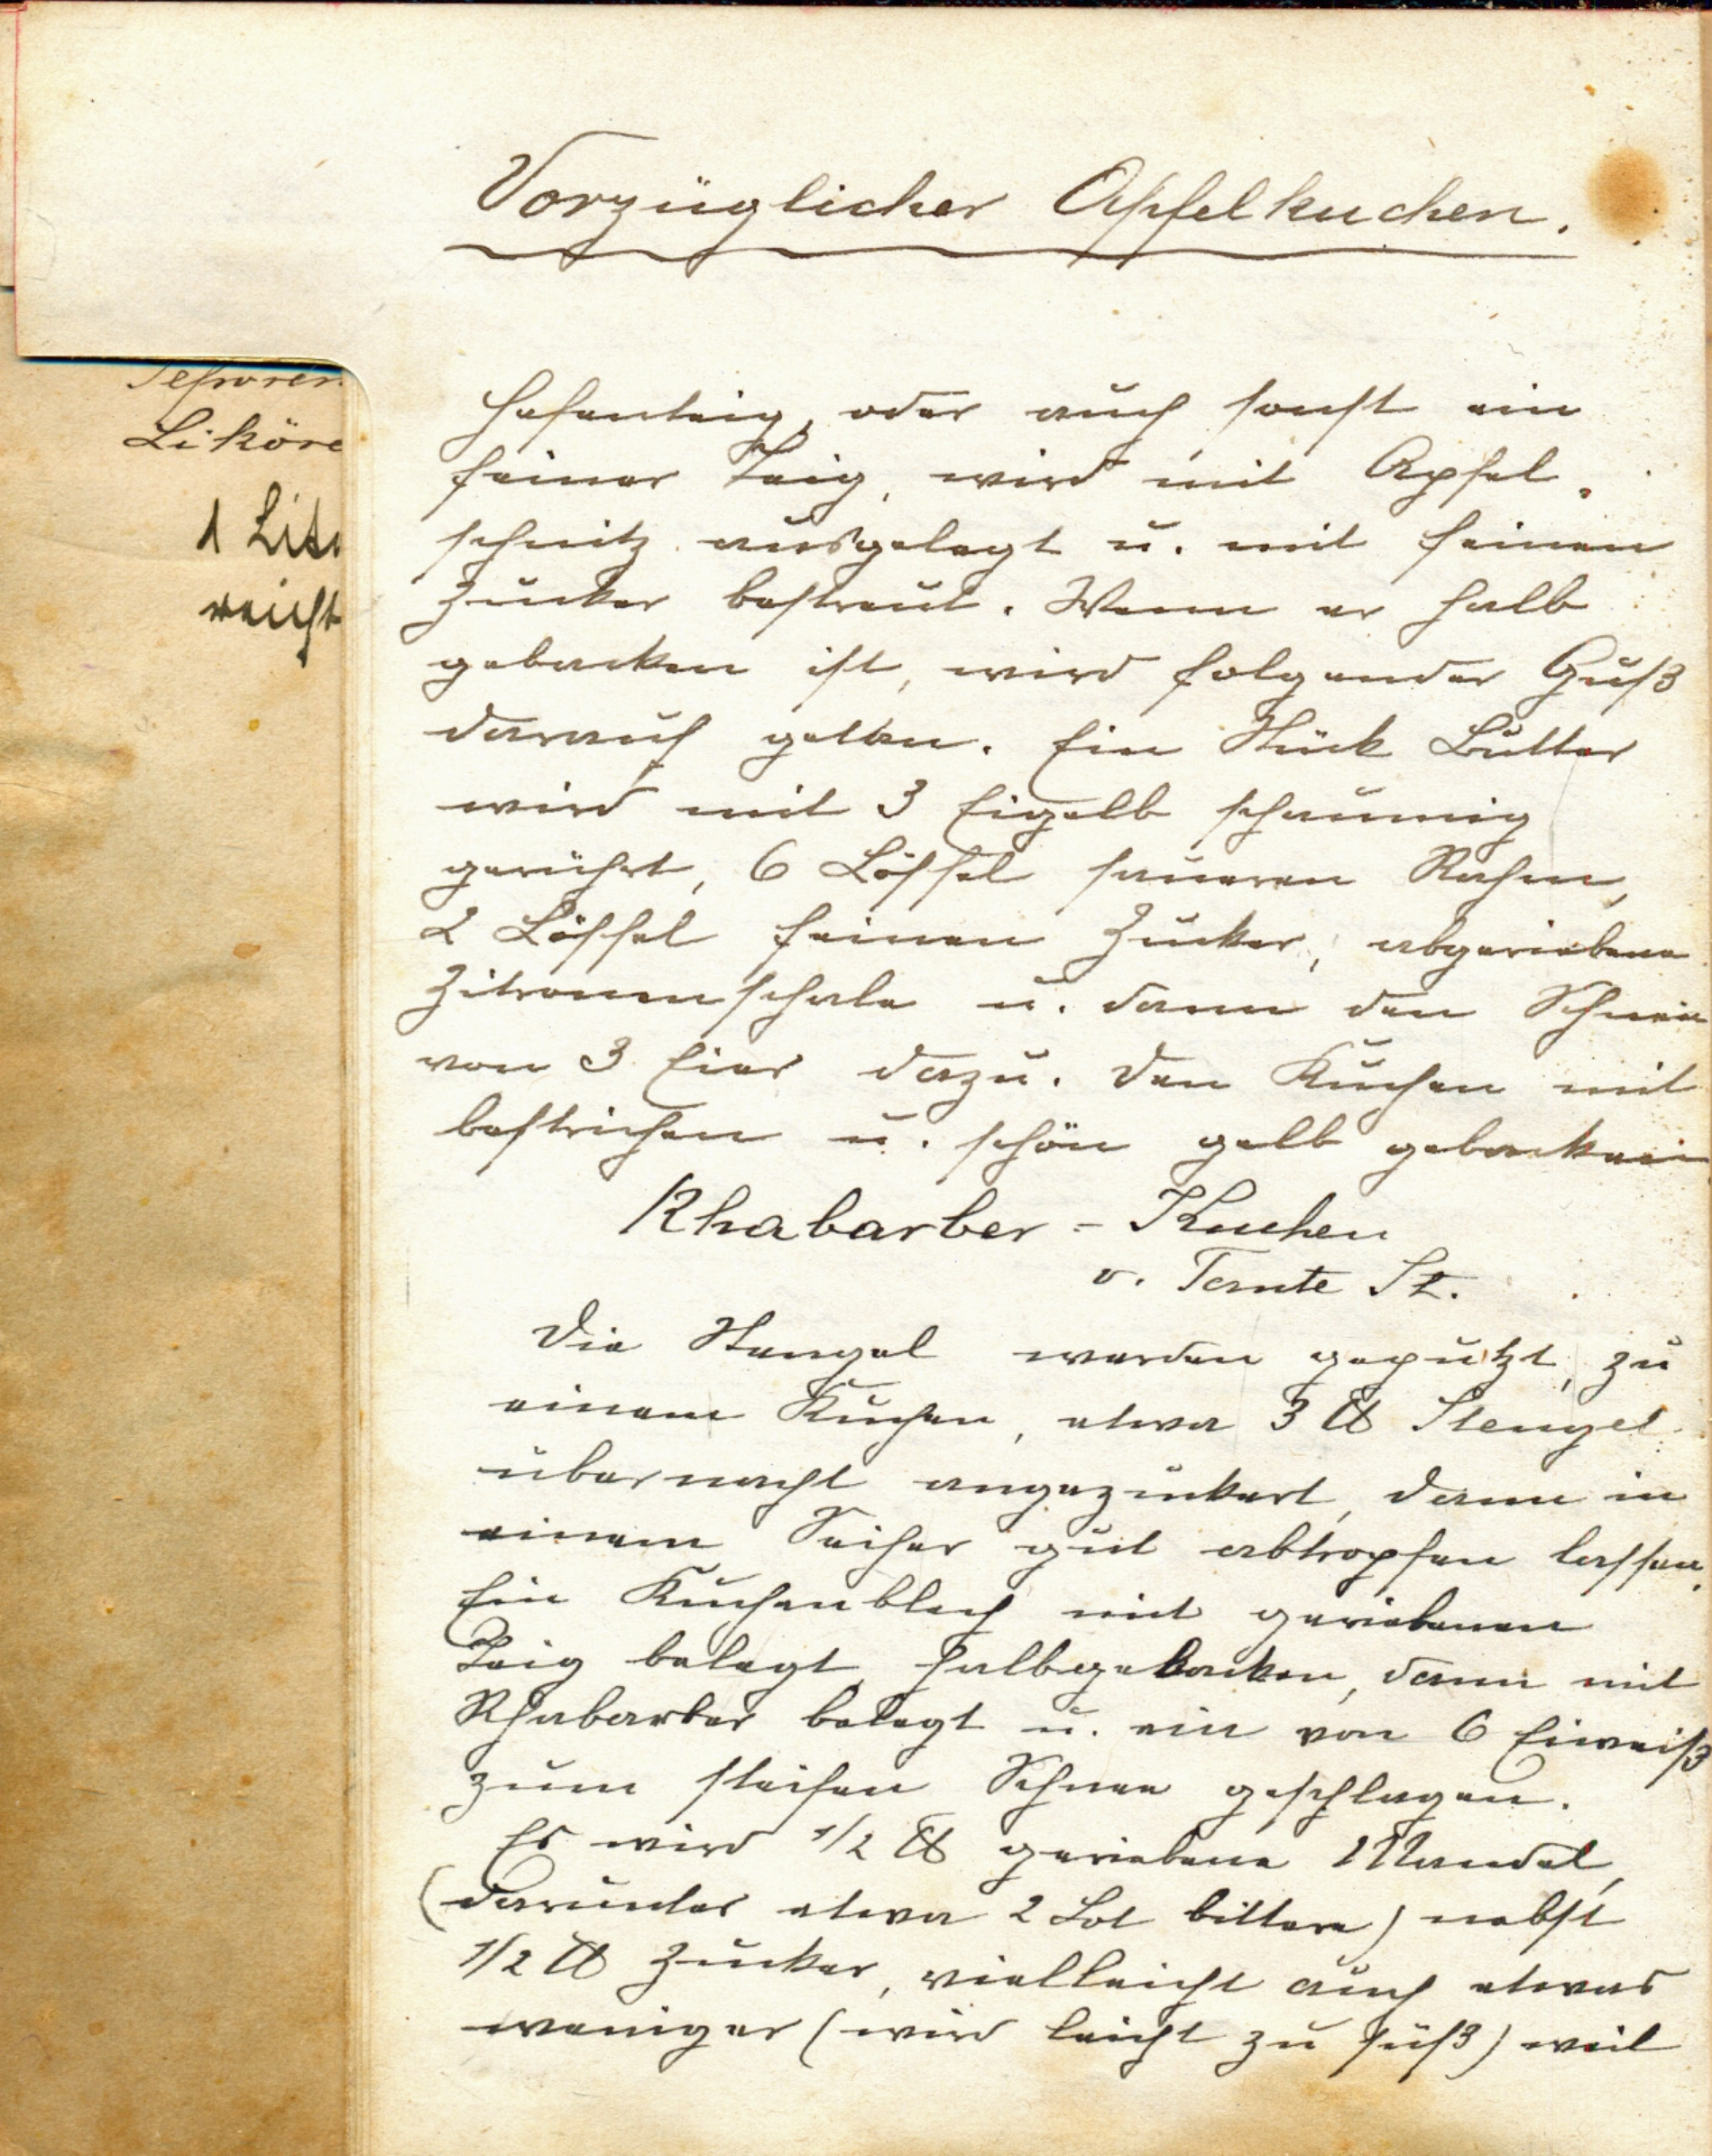 Vorzüglicher Apfelkuchen.
Hefenteig, oder auch sonst ein
feiner Teig, wird mit Apfel-
schnitz ausgelegt u. mit feinen
Zucker bestreut. Wenn er halb
gebacken ist, wird folgender Guß
darauf getan. Ein Stück Butter
wird mit 3 Eigelb schaumig
gerührt, 6 Löffel saueren Rahm,
2 Löffel feinen Zucker, abgeriebene
Zitronenschale u. dann den Schnee
von 3 Eier dazu. Den Kuchen mit
bestrichen u. schön gelb gebacken
Rhabarber-Kuchen
v. Tante St.
Die Stengel werden geputzt, zu
einem Kuchen, etwa 3 ℔ Stengel
übernacht angezuckert, dann in
einem Seiher gut abtropfen lassen.
Ein Kuchenblech mit geriebenen
Teig belegt, halbgebacken, dann mit
Rhabarber belegt u. ein von 6 Eiweiß
zum steifen Schnee geschlagen.
Es wird 1/2 ℔ geriebene Mandel,
(darunter etwa 2 Lot bittere) nebst
1/2 ℔ Zucker, vielleicht auch etwas
weniger (wird leicht zu süß) weil
Liköre
1 Lite
reicht